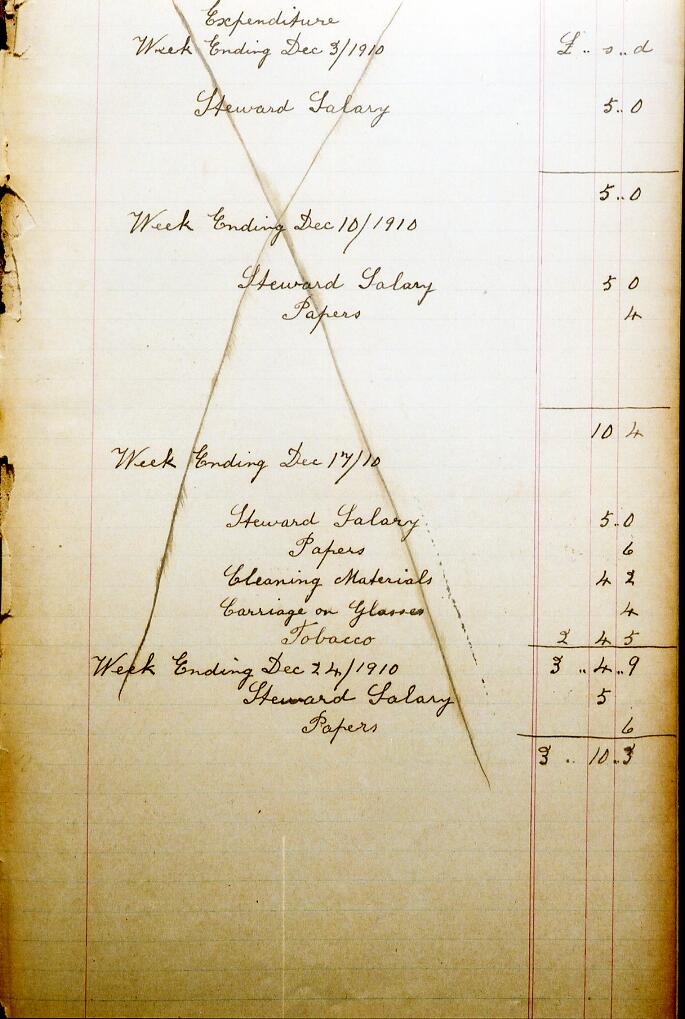 Expenditure
Week Ending Dec 3/1910 £ .. s .. d
Steward Salary 5 .. 0
5 .. 0
Week Ending Dec 10/1910
Steward Salary 5 0
Papers 4
10 4
Week Ending Dec 17/10
Steward Salary 5 .. 0
Papers 6
Cleaning Materials 4 2
Carriage on Glasses 4
Tobacco 2 4 5
Week Ending Dec 24/1910 3 .. 4 .. 9
Steward Salary 5
Papers 6
3 .. 10 .. 3